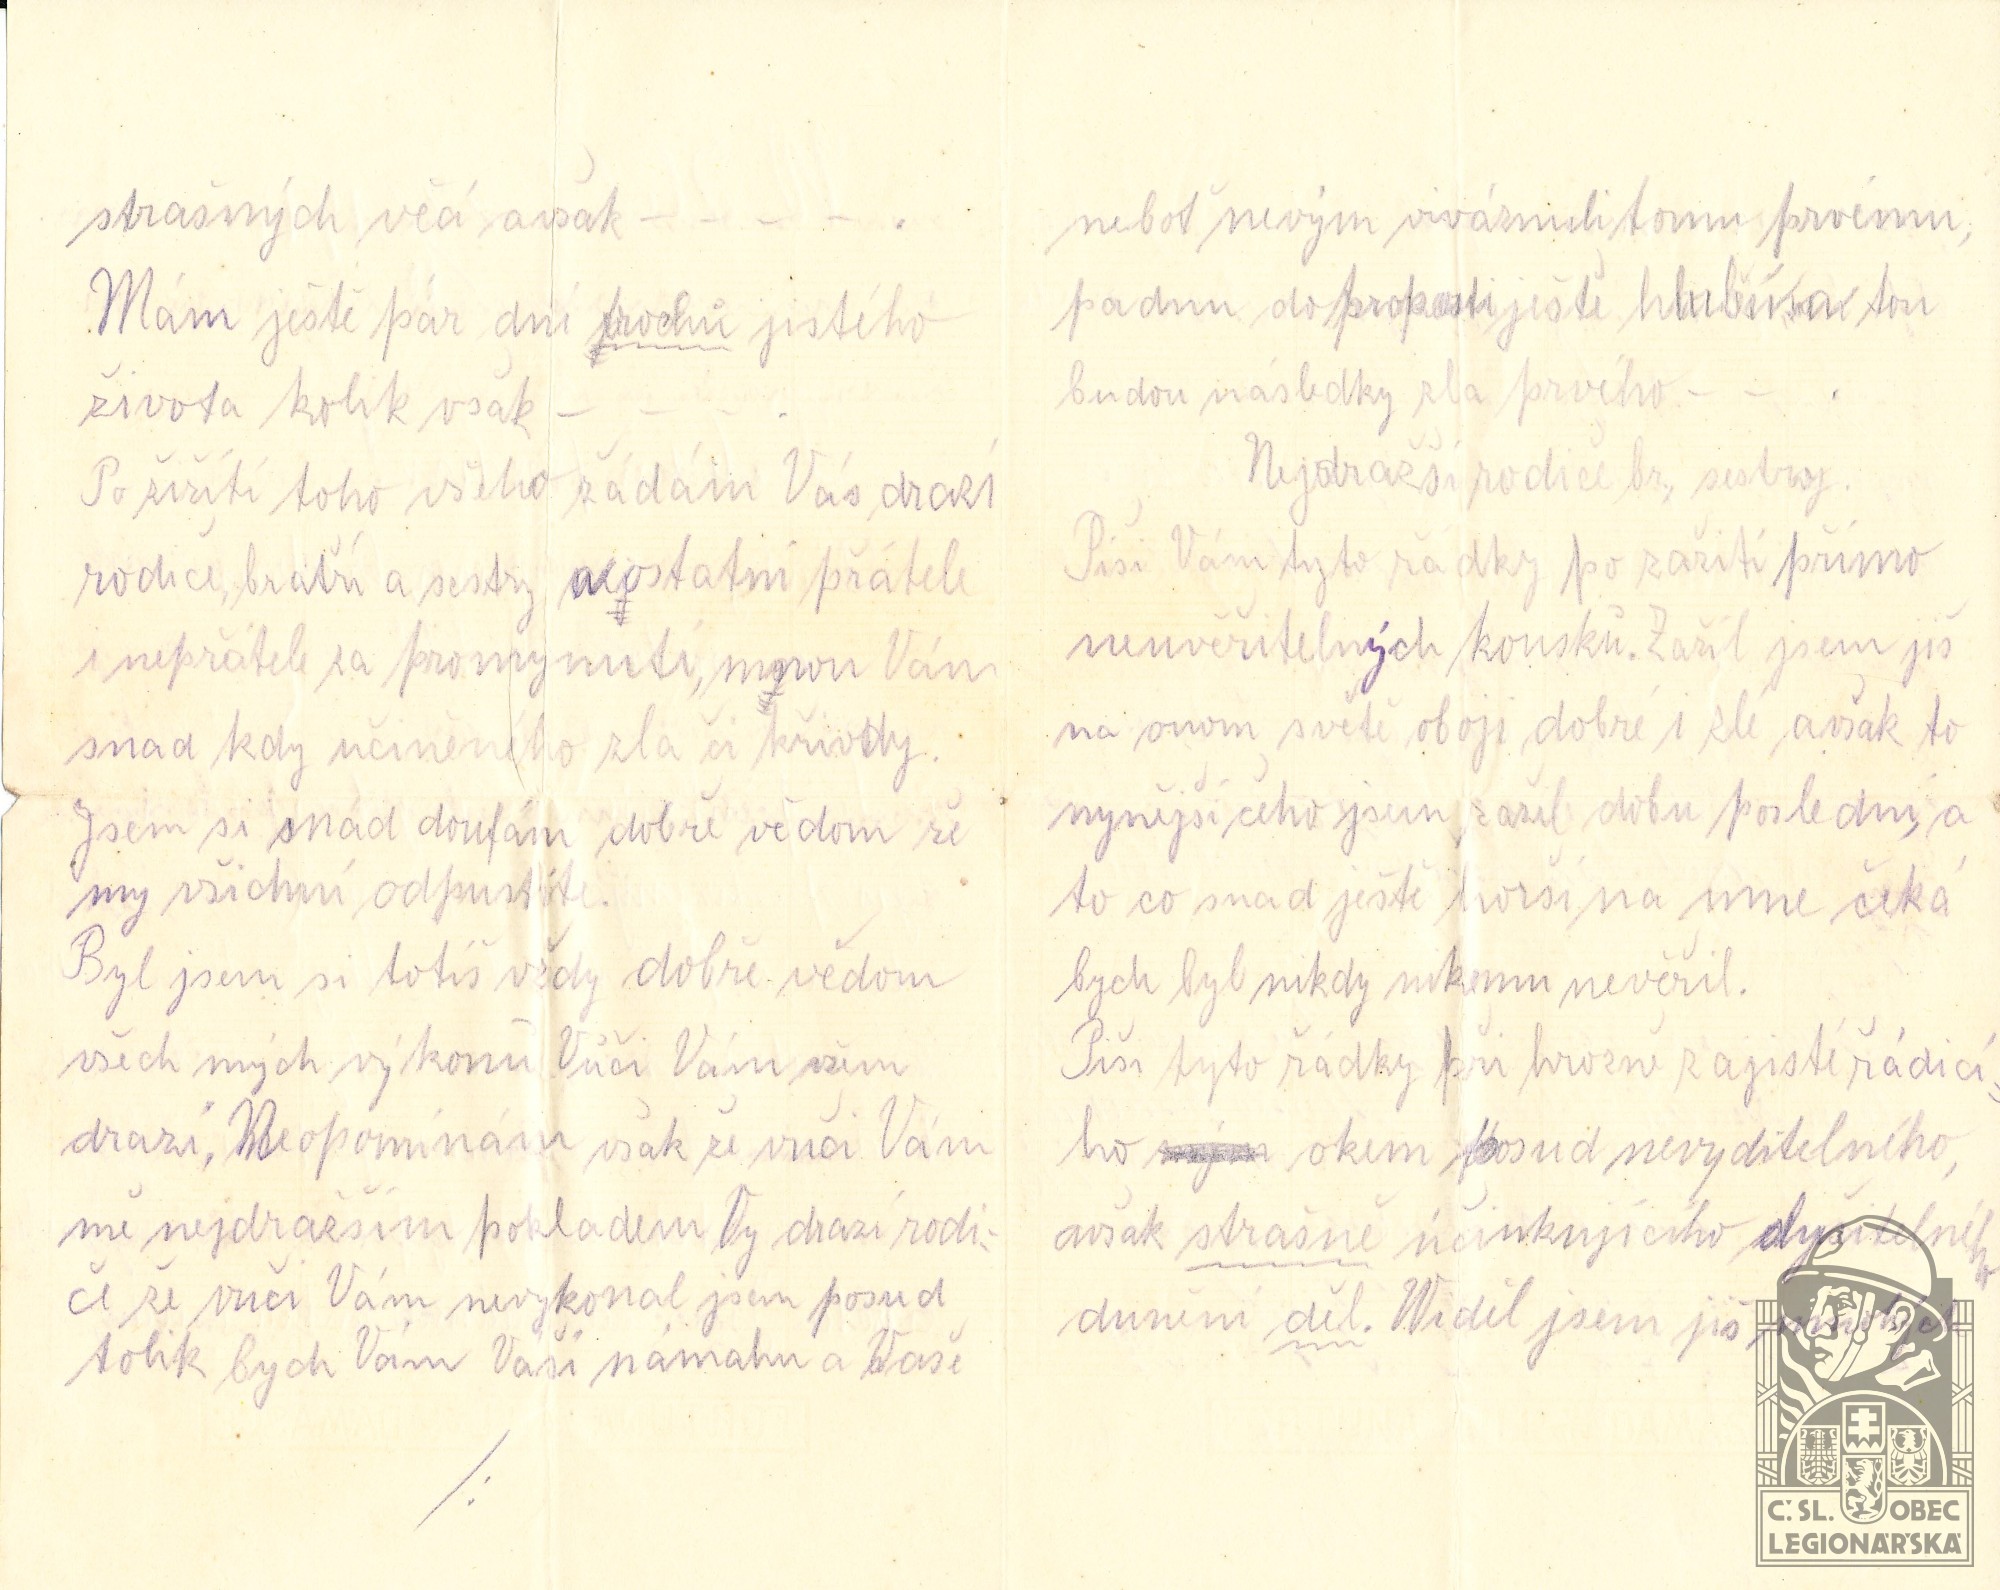 strašných věcí avšak – – – – .
Mám ještě pár dní trochu jistého
života kolik však – – – .
Po žižíti toho všeho žádám Vás drazí
rodiče, bratří a sestry a ostatní přátele
i nepřátele za promynutí, mnou Vám
snad kdy učiněného zla či křivdy.
Jsem si snad doufám dobře vědom že
my všichni odpustíte.
Byl jsem si totiš vždy dobře vědom
všech mých výkonů Vůči Vám všem
drazí, Neopomínám však že vuči Vám
mě nejdražším pokladem Vy drazí rodi-
če že vuči Vám nevykonal jsem posud
tolik bych Vám Vaší námahu a Vaše
/:
neboť nevým viváznuli tomu prvému,
padnu do propasti ještě hlubší a tou
budou následky zla prvého – – .
Nejdražší rodiče br, sestry.
Píši Vám tyto řádky po zažití přímo
neuvěřitelných kousků. Zažil jsem jiš
na onom světě obojí dobré i zlé avšak to
nynější čeho jsem zažil dobu poslední, a
to co snad ještě horší na mne čeká
bych byl nikdy nikomu nevěřil.
Píši tyto řádky při hrozně zajisté řádící-
ho okem posud nevyditelného,
avšak strašně účinkujícího slyšitelného
dunění děl. Widěl jsem jiš mnohých
Č. SL. OBEC
LEGIONÁŘSKÁ